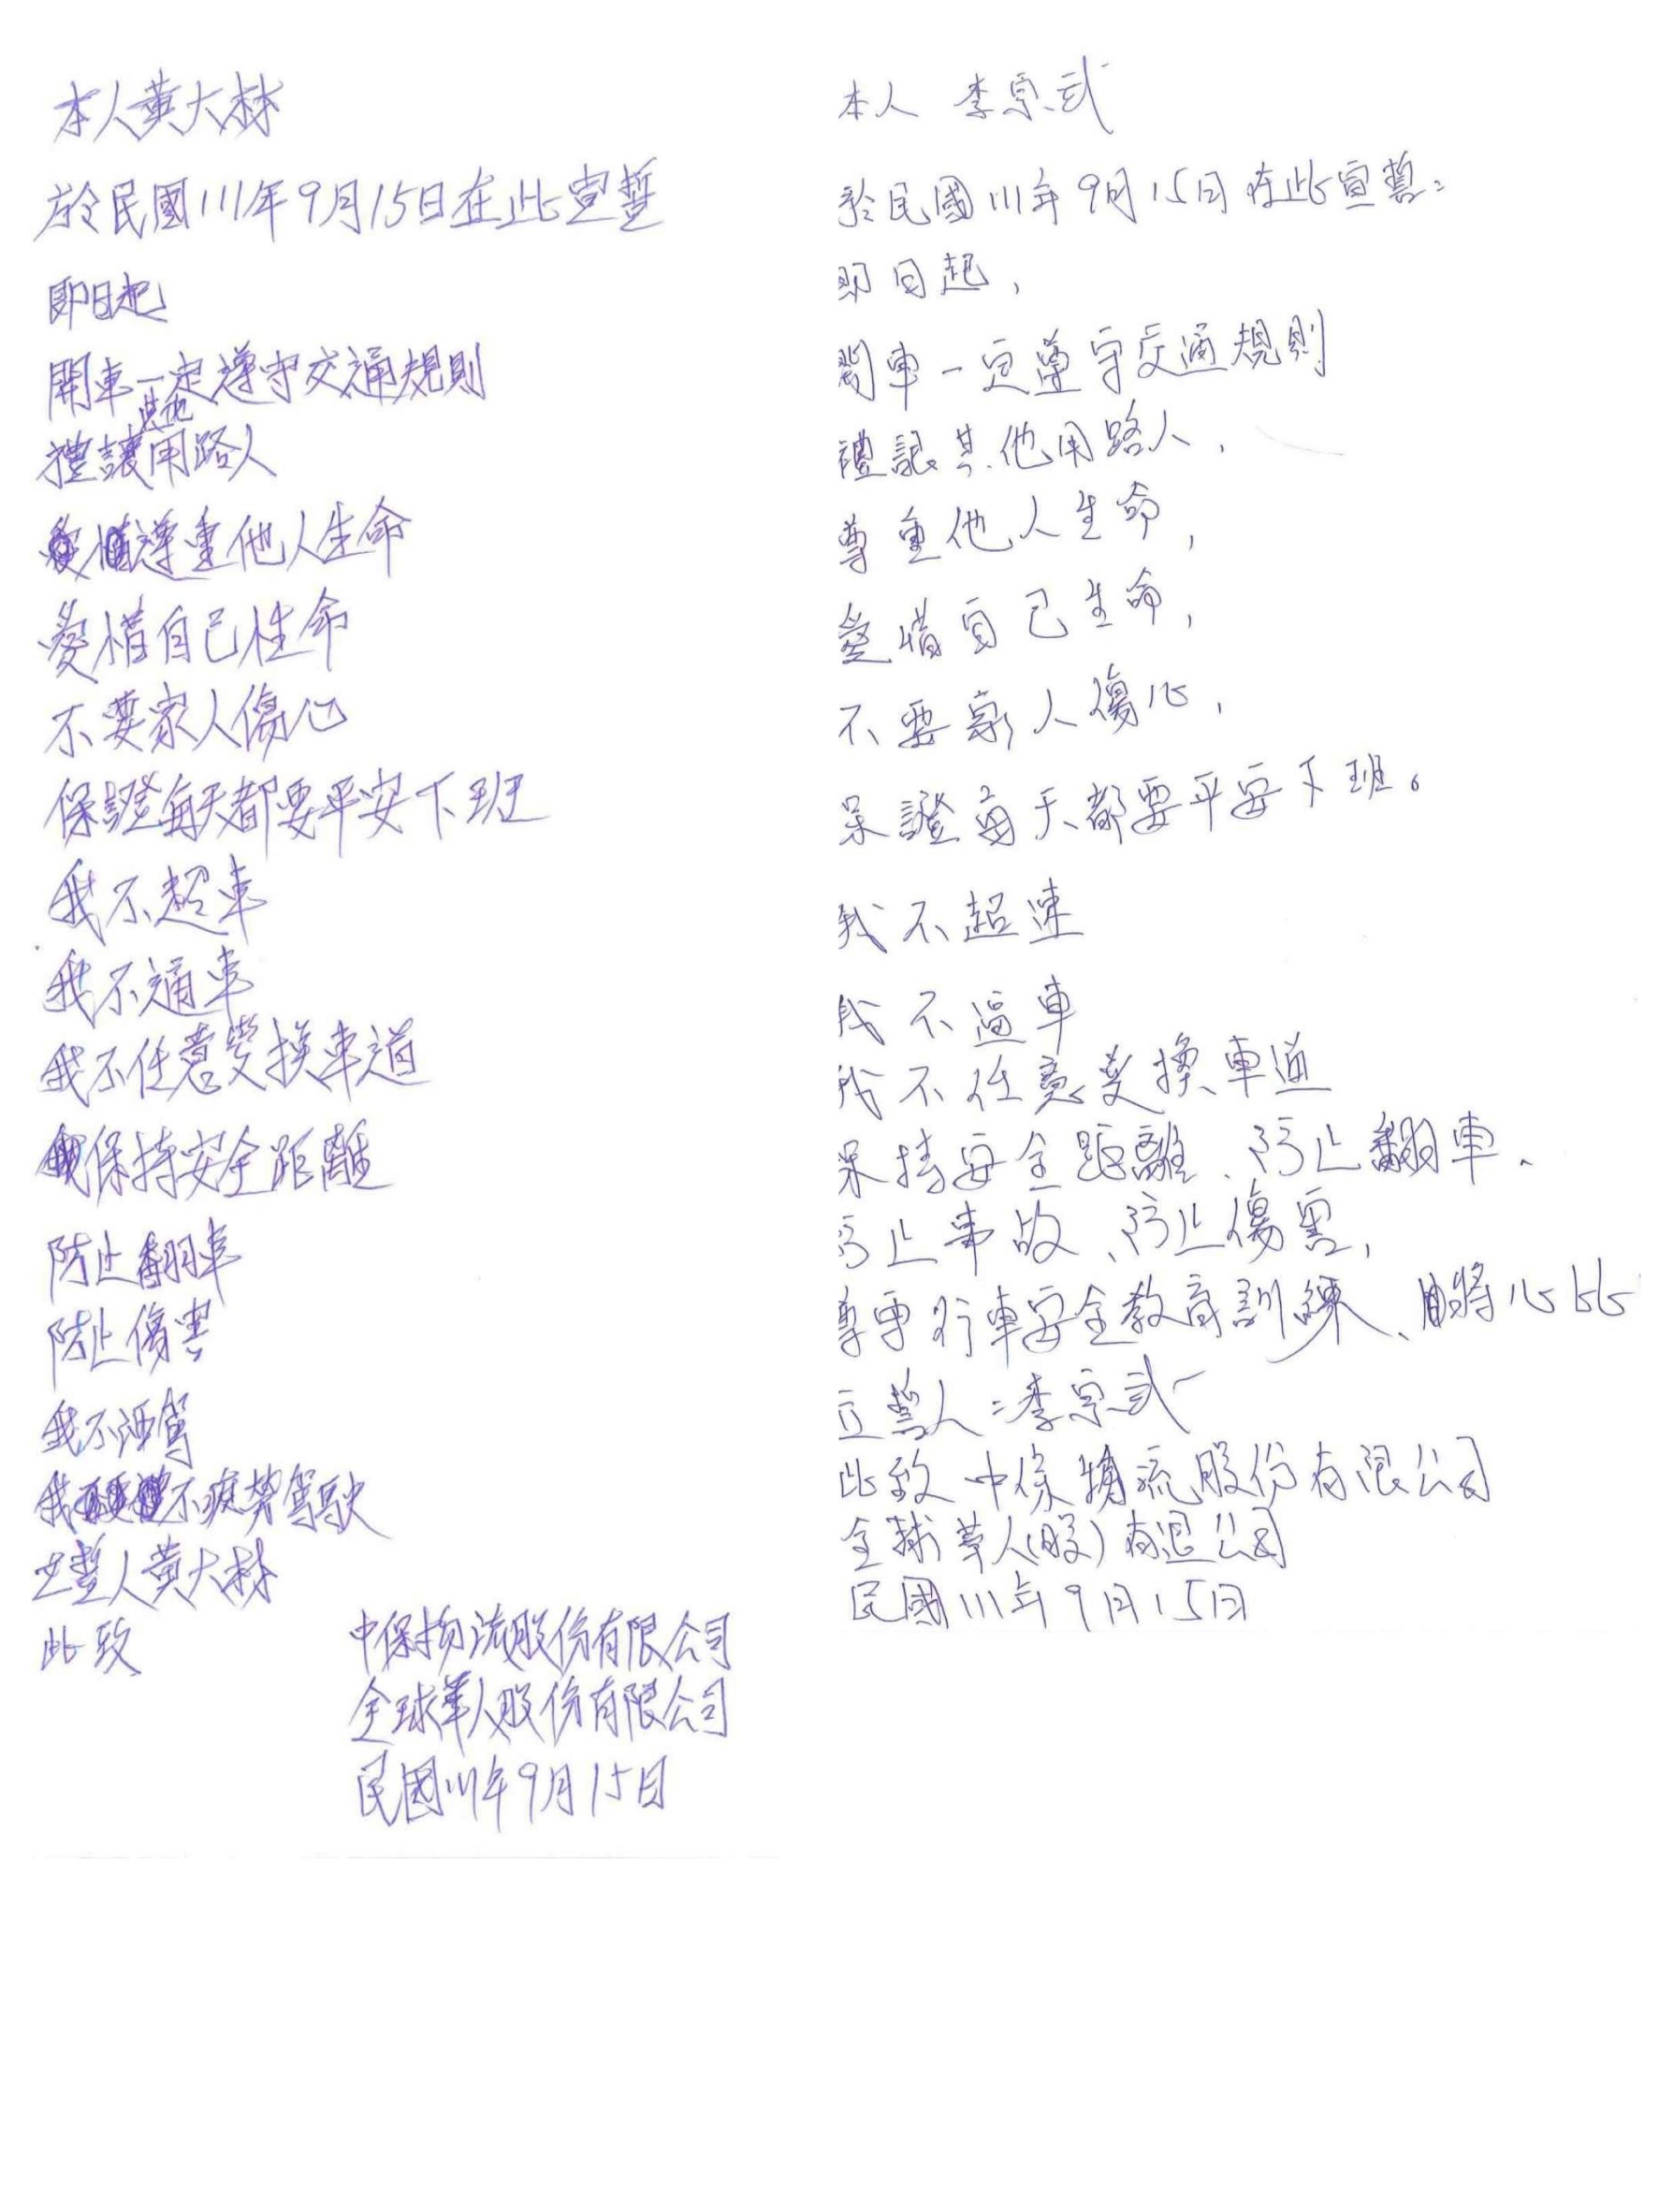 本人黃大林
於民國111年9月15日在此宣誓
即日起
開車一定遵守交通規則
禮讓其他用路人
遵重他人生命
愛惜自己性命
不要家人傷心
保證每天都要平安下班
我不超車
我不逼車
我不任意變換車道
保持安全距離
防止翻車
防止傷害
我不酒駕
我不疲勞駕駛
立誓人黃大林
此致
中保物流股份有限公司
全球華人股份有限公司
民國111年9月15日
本人 李宗武
於民國111年9月15日在此宣誓:
即日起,
開車一定遵守交通規則
禮讓其他用路人,
尊重他人生命,
愛惜自己生命,
不要家人傷心,
保證每天都要平安下班。
我不超速
我不逼車
我不任意變換車道
保持安全距離、防止翻車、
防止事故、防止傷害,
尊重行車安全教育訓練、將心比
立誓人:李宗武
此致 中保物流股份有限公司
全球華人(股)有限公司
民國111年9月15日